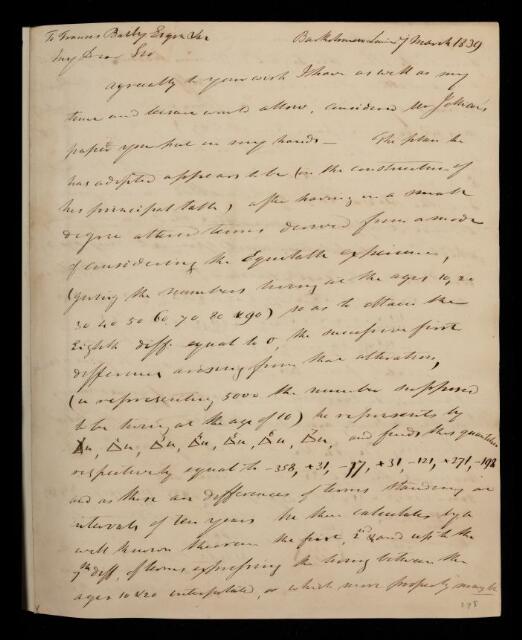 To Francis Baily Esqr
Bartholomew Lane 7 March 1839
My Dear Sir
agreeably to your wish I have as well as my
time and leisure would allow, considered Mr Jellicoe's
paper you put in my hands — The plan he
has adopted appears to be (in the construction of
his principal table) after having in a small
degree altered terms derived from a mode
of considering the Equitable experience,
(giving the numbers living at the ages 10, 20
30 40 50 60, 70, 80 & 90) so as to obtain the
Eighth diff. equal to 0, the successive first
differences arising from that alteration,
(u representing 5000 the number supposed
to be living at the age of 10) he represents by
Δu, Δu, Δu, Δu, Δu, Δu, Δu, and finds this quantities
respectively equal to -358, +31, -17, +31, -121, +271, -198
and as these are differences of terms standing in
intervals of ten years he then calculates by a
well known theorem the first, 2nd and up to the
7th diff. of terms expressing the living between the
ages 10 & 20 interpolated, or which more properly may be